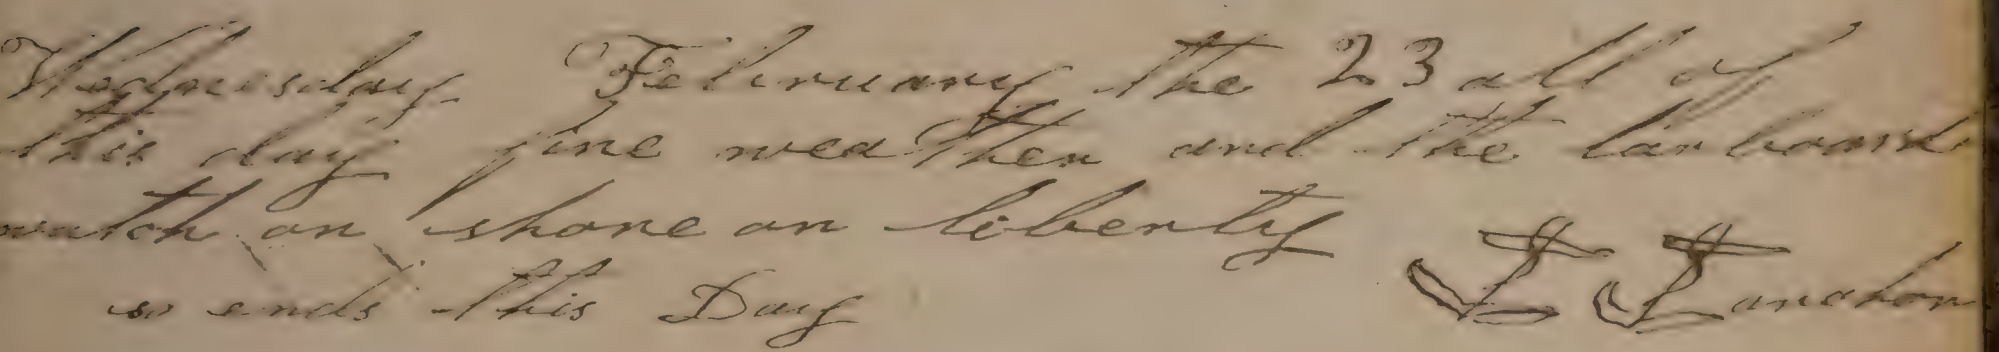 Wednesday February the 23 all of
this day fine weather and the larboard
watch on shore on liberty
so ends this Day